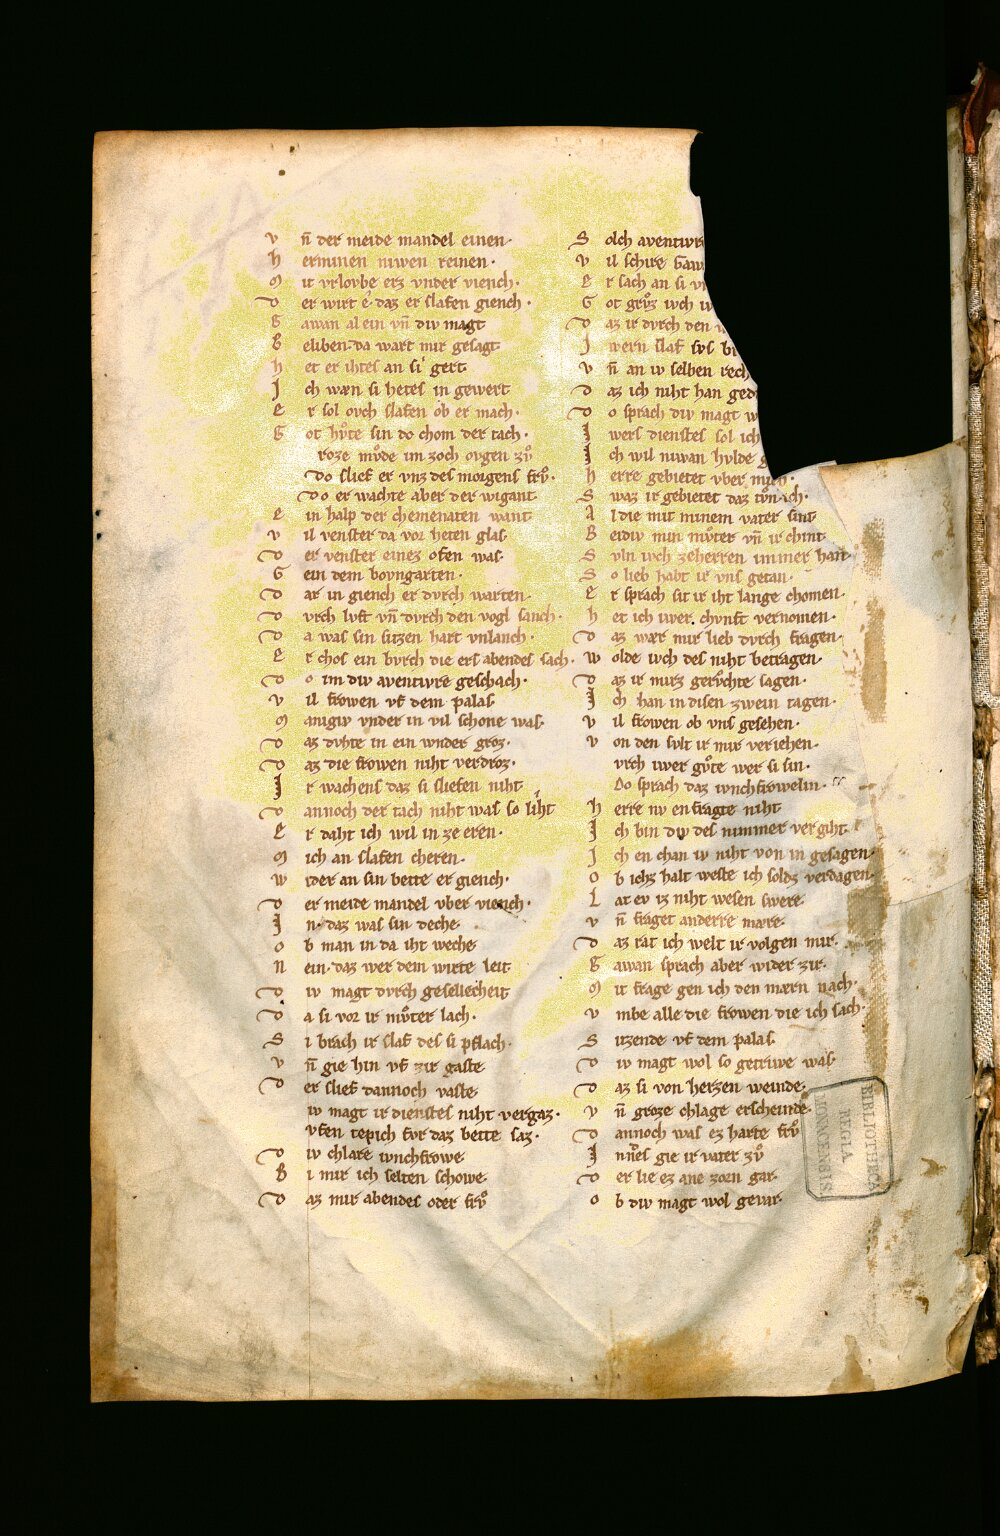 vn̄ der meide mandel einen·
herminen niwen reinen·
Mit vrlovbe erz vnder viench·
Der wirt é daz er slafen giench·
Gawan al ein vn̄ div magt
Beliben da wart mir gesagt
het er ihtes an si gert
Ich wæn si hetes in gewert
Er sol ovch slafen ob er mach·
Got hvͦte sin do chom der tach·
roze mvͦde im zoch ovgen zvͦ
Do slief er vnz des morgens frvͦ·
Do er wachte aber der wigant
Ein halp der chemenaten want
Vil venster da vor heten glas
Der venster einez ofen was
Gein dem bovngarten·
Dar in giench er dvrch warten·
Dvrch lvft vn̄ dvrch den vogl sanch·
Da was sin sitzen hart vnlanch·
Er chos ein bvrch die ers abendes sach·
Do im div aventivre geschach·
Vil frowen vf dem palas
Manigiv vnder in vil schone was·
Daz dvhte in ein wnder groz·
Daz die frowen niht verdroz·
Ir wachens daz si sliefen niht
Dannoch der tach niht was so liht
Er daht ich wil in ze eren·
Mich an slafen cheren·
Wider an sin bette er giench·
Der meide mandel vber viench·
In· daz was sin deche
Ob man in da iht weche
Nein· daz wer dem wirte leit
Div magt dvrch gesellecheit
Da si vor ir mvͦter lach·
Si brach ir slaf des si pflach·
Vn̄ gie hin vf zir gaste
Der slief dannoch vaste
iv magt ir dienstes niht vergaz·
vfen tepich fvr daz bette saz·
Div chlare ivnchfrowe
Bi mir ich selten schowe
Daz mir abendes oder frvͦ
Solch aventivre
Vil schire Gaw
Er sach an si vn
Got grvͦz ivch
Daz ir dvrch den
Iwern slaf svs
Vn̄ an iv selben rech
Daz ich niht han ged
Do sprach div magt
Iwers dienstes sol ich
Ich wil niwan hvlde
herre gebietet vber mich·
Swaz ir gebietet daz tvͦn ich·
Al die mit minem vater sint
Beidiv min mvͦter vn̄ ir chint
Svln ivch zeherren immer han
So lieb habt ir vns getan·
Er sprach sit ir iht lange chomen·
Het ich iwer chvnft vernomen·
Daz wær mir lieb dvrch fragen·
Wolde ivch des niht betragen·
Daz ir mirz gervͦchte sagen·
Ich han in disen zwein tagen·
Vil frowen ob vns gesehen·
Von den svlt ir mir veriehen·
vrch iwer gvͦte wer si sin·
Do sprach daz ivnchfrowelin·
herre nv enfragte niht
Ich bin div des nimmer vergiht
Ich en chan iv niht von in gesagen·
Ob ichz halt weste ich soldz verdagen·
Lat ev iz niht wesen swere
Vn̄ fraget anderre mære
Daz rat ich welt ir volgen mir·
Gawan sprach aber wider zir·
Mit frage gen ich den mærn nach·
Vmbe alle die frowen die ich sach·
Sitzende vf dem palas
Div magt wol so getriwe was·
Daz si von herzen weinde·
Vn̄ groze chlage erscheinde·
Dannoch was ez harte frvͦ
Innes gie ir vater zvͦ
Der lie ez ane zorn gar
Ob div magt wol gevar
BIBLIOTHECA
REGIA
MONACENSIS